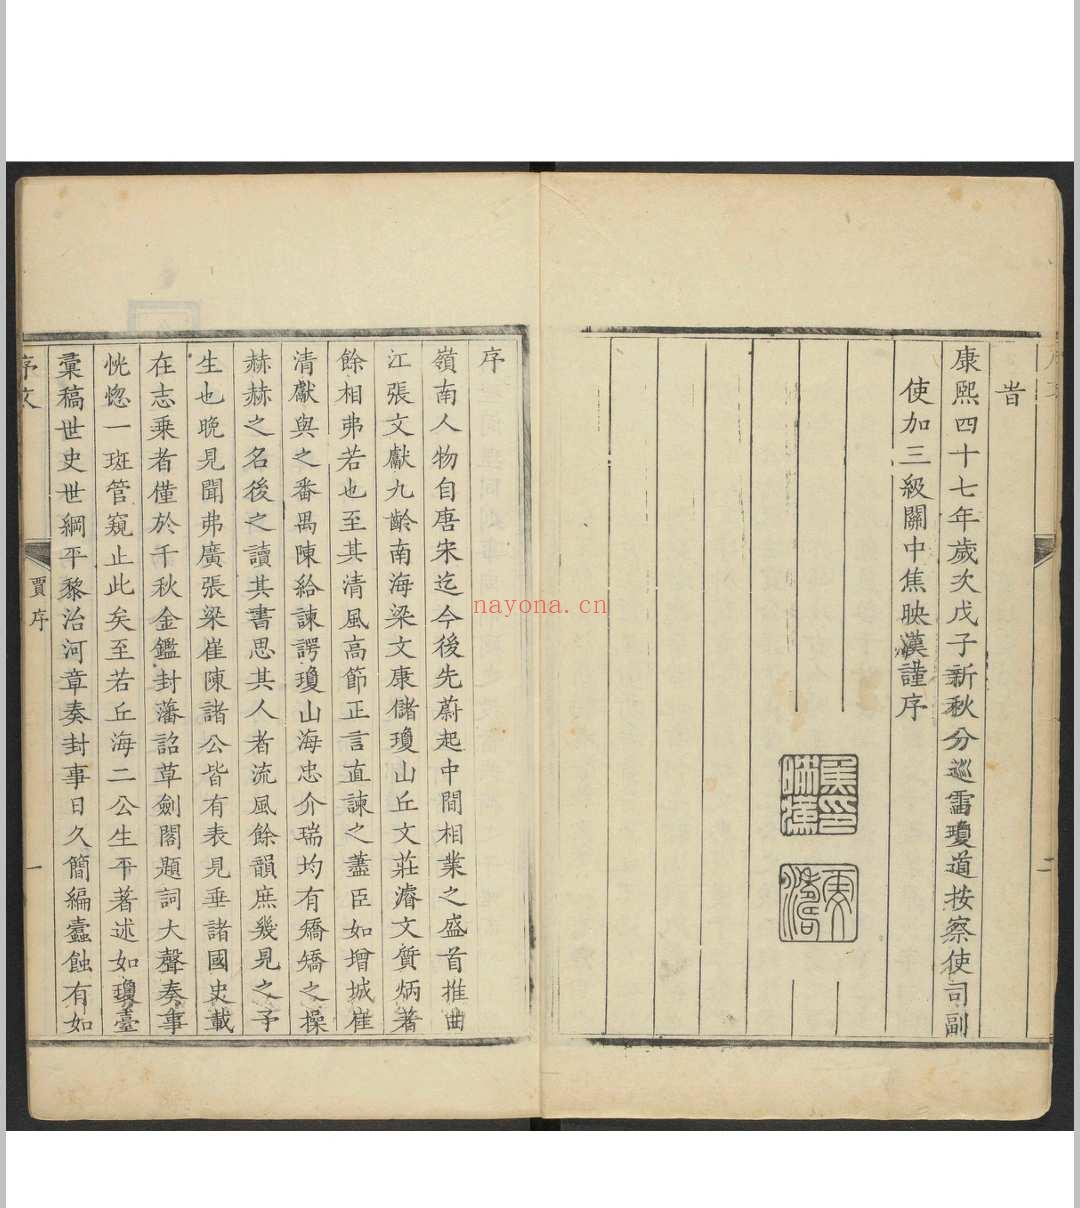 旹
康熙四十七年歲次戊子新秋分巡雷瓊道按察使司副
使加三級關中焦映漢謹序
焦映漢印
二
序
嶺南人物自唐宋迄今後先蔚起中間相業之盛首推曲
江張文獻九齡南海梁文康儲瓊山丘文莊濬文質炳著
餘相弗若也至其清風高節正言直諫之藎臣如增城崔
清獻與之番禺陳給諫諤瓊山海忠介瑞均有矯矯之操
赫赫之名後之讀其書思其人者流風餘韻庶幾見之予
生也晚見聞弗廣張梁崔陳諸公皆有表見垂諸國史載
在志乘者僅於千秋金鑑封藩詔草劍閣題詞大聲奏事
恍惚一斑管窺止此矣至若丘海二公生平著述如瓊臺
彙稿世史世綱平黎治河章奏封事日久簡編蠹蝕有如
序文
賈序
一
nayona.cn